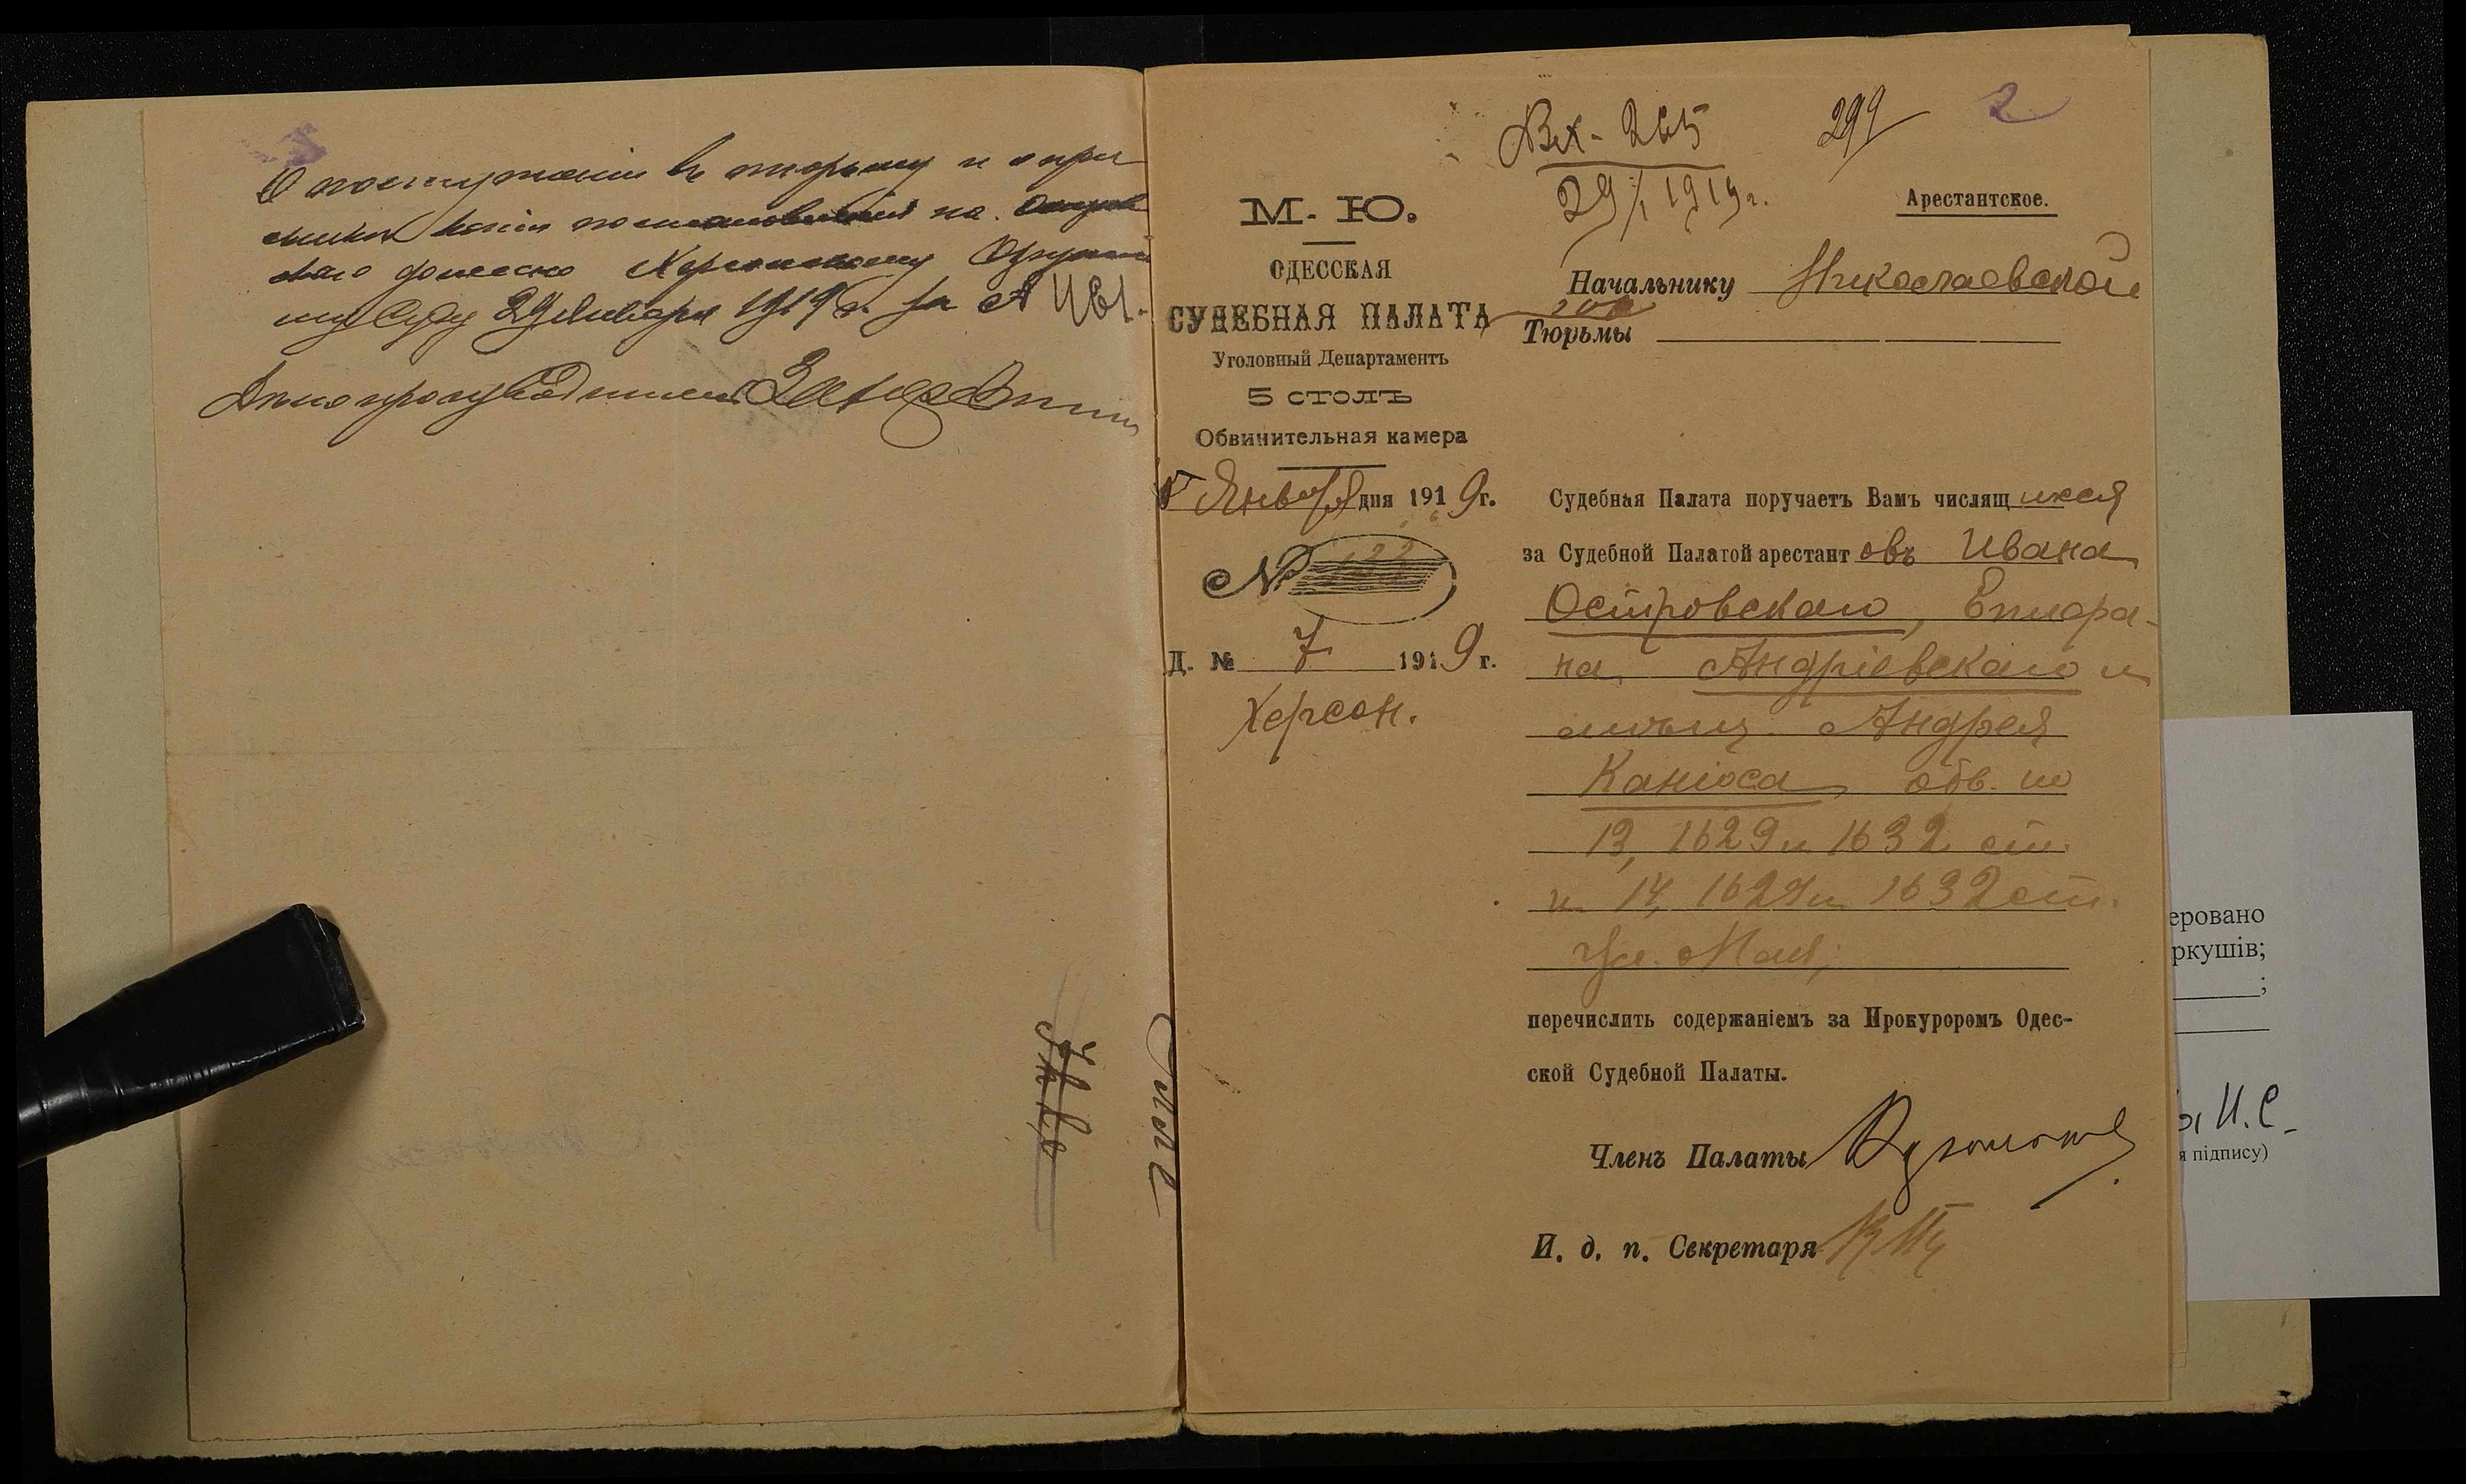 О поступлении въ тюрьму и о при
копіи постановленія на Остров
скаго донесено Херсонскому Окружно
му Суду 29 Января 1919 г. за № 461.
Делопроизводитель
2
299
Вх - 265
29/I 1919 г.
Арестантское.
М. Ю.
ОДЕССКАЯ
СУДЕБНАЯ ПАЛАТА
Уголовный Департаментъ
5 столъ
Обвинительная камера
Января дня 1919 г.
№ 122
Д. № 7 1919 г.
Херсон.
Начальнику Николаевской
Тюрьмы
Судебная Палата поручаетъ Вамъ числящихся
за Судебной Палатой арестантовъ Ивана
Островскаго,
на Андріевскаго и
Андрея
Каніоса, обв. по
13, 1629 и 1632 ст.
и 14, 1629 и 1632 ст.
Ул. Нак;
перечислить содержаніемъ за Прокуроромъ Одес-
ской Судебной Палаты.
Членъ Палаты
И. д. п. Секретаря
еровано
ркушів;
;
И.С.
я підпису)